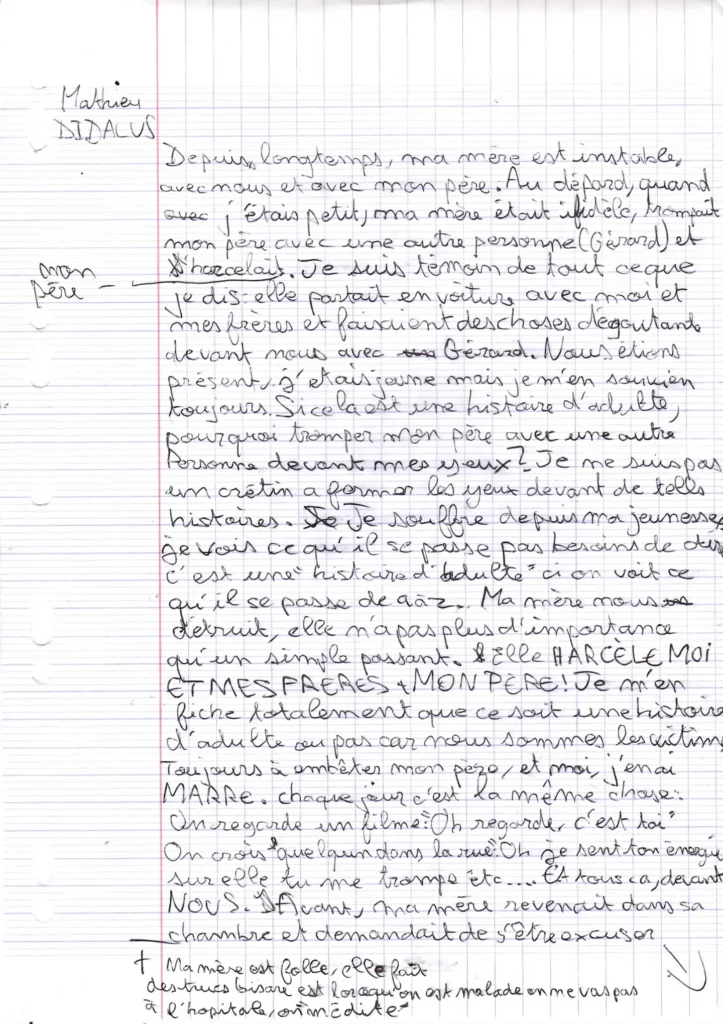 Mathieu
DIDALUS
Depuis longtemps, ma mère est instable,
avec nous et avec mon père. Au dépard, quand
avec j'étais petit, ma mère était ifidèle, trompait
mon père avec une autre personne (Gérard) et
mon père
l'harcelait. Je suis témoin de tout ceque
je dis: elle partait en voiture avec moi et
mes frères et faisaient des choses dégoutand
devant nous avec Gérard. Nous étions
présent, j'etais jeune mais je m'en souvien
toujours. Si cela est une histoire d'adulte,
pourquoi tromper mon père avec une autre
Personne devant mes yeux? Je ne suis pas
un crétin a fermer les yeux devant de tells
histoires. Je Je souffre depuis ma jeunesse,
je vois ce qu'il se passe pas besoins de dir
c'est une "histoire d'adulte" ci on voit ce
qu'il se passe de a à z.. Ma mère nous
détruit, elle n'a pas plus d'importance
qu'un simple passant. Elle HARCÈLE MOI
ET MES FRERES + MON PÈRE! Je m'en
fiche totalement que ce soit une histoire
d'adulte ou pas car nous sommes les victim
Toujours à embêter mon père, et moi, j'en ai
MARRE. chaque jour c'est la même chose:
On regarde un filme: "Oh regarde, c'est toi"
On crois quelqun dans la rue: "Oh je sent ton énergie
sur elle tu me trompe etc.... Et tous ca, devant
NOUS. Avant, ma mère revenait dans sa
chambre et demandait de s'être excuser
+ Ma mère est folle, elle fait
des trucs bisare est lorsqu'on est malade on ne vas pas
à l'hopitale, on médite